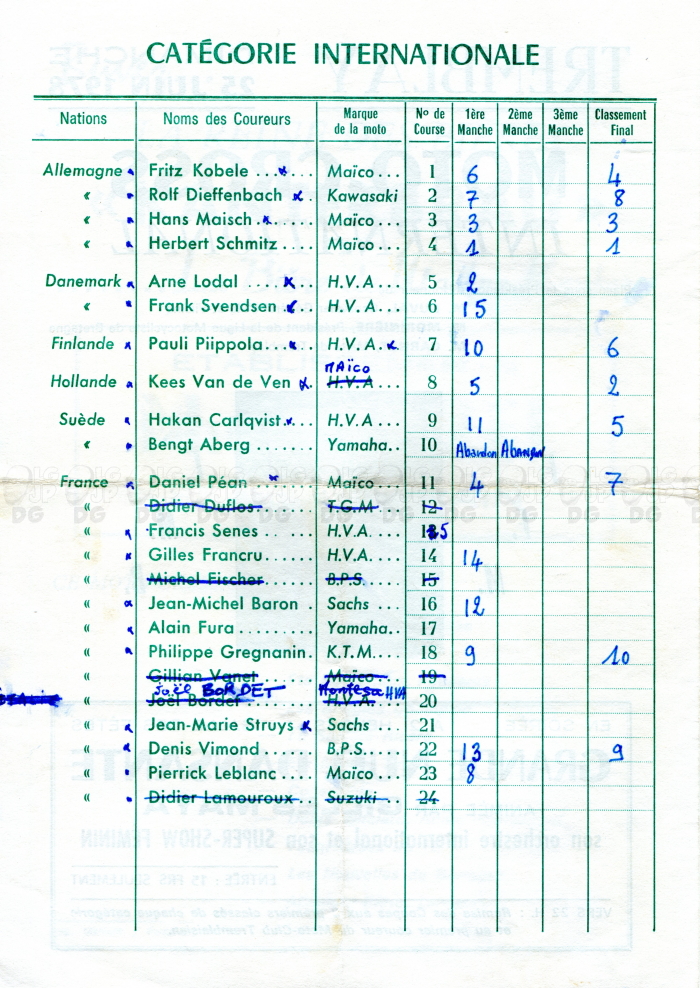 CATÉGORIE INTERNATIONALE
Nations Noms des Coureurs Marque de la moto No de Course 1ère Manche 2ème Manche 3ème Manche Classement Final
Allemagne Fritz Kobele .... Maïco... 1 6 4
« Rolf Dieffenbach Kawasaki 2 7 8
« Hans Maisch. Maïco... 3 3 3
« Herbert Schmitz .... Maïco... 4 1 1
Danemark Arne Lodal H.V.A.... 5 2
« Frank Svendsen H.V.A.... 6 15
Finlande Pauli Piippola... H.V.A. 7 10 6
MAïco
Hollande Kees Van de Ven H.V.A.... 8 5 2
Suède Hakan Carlqvist.. H.V.A.... 9 11 5
« Bengt Aberg........ Yamaha.. 10 Abandon Abandon
France Daniel Péan Maïco... 11 4 7
« Didier Duflos...... T.G.M... 12
« Francis Senes ...... H.V.A.... 5
« Gilles Francru...... H.V.A.... 14 14
« Michel Fischer...... B.P.S.... 15
« Jean-Michel Baron . Sachs ... 16 12
« Alain Fura ......... Yamaha.. 17
« Philippe Gregnanin. K.T.M.... 18 9 10
« Gillian Vanet Maïco... 19
Joël BORDET Montesa HVA
« Joël Bordet H.V.A.... 20
« Jean-Marie Struys Sachs ... 21
« Denis Vimond...... B.P.S.... 22 13 9
« Pierrick Leblanc.... Maïco... 23 8
« Didier Lamouroux.. Suzuki .. 24